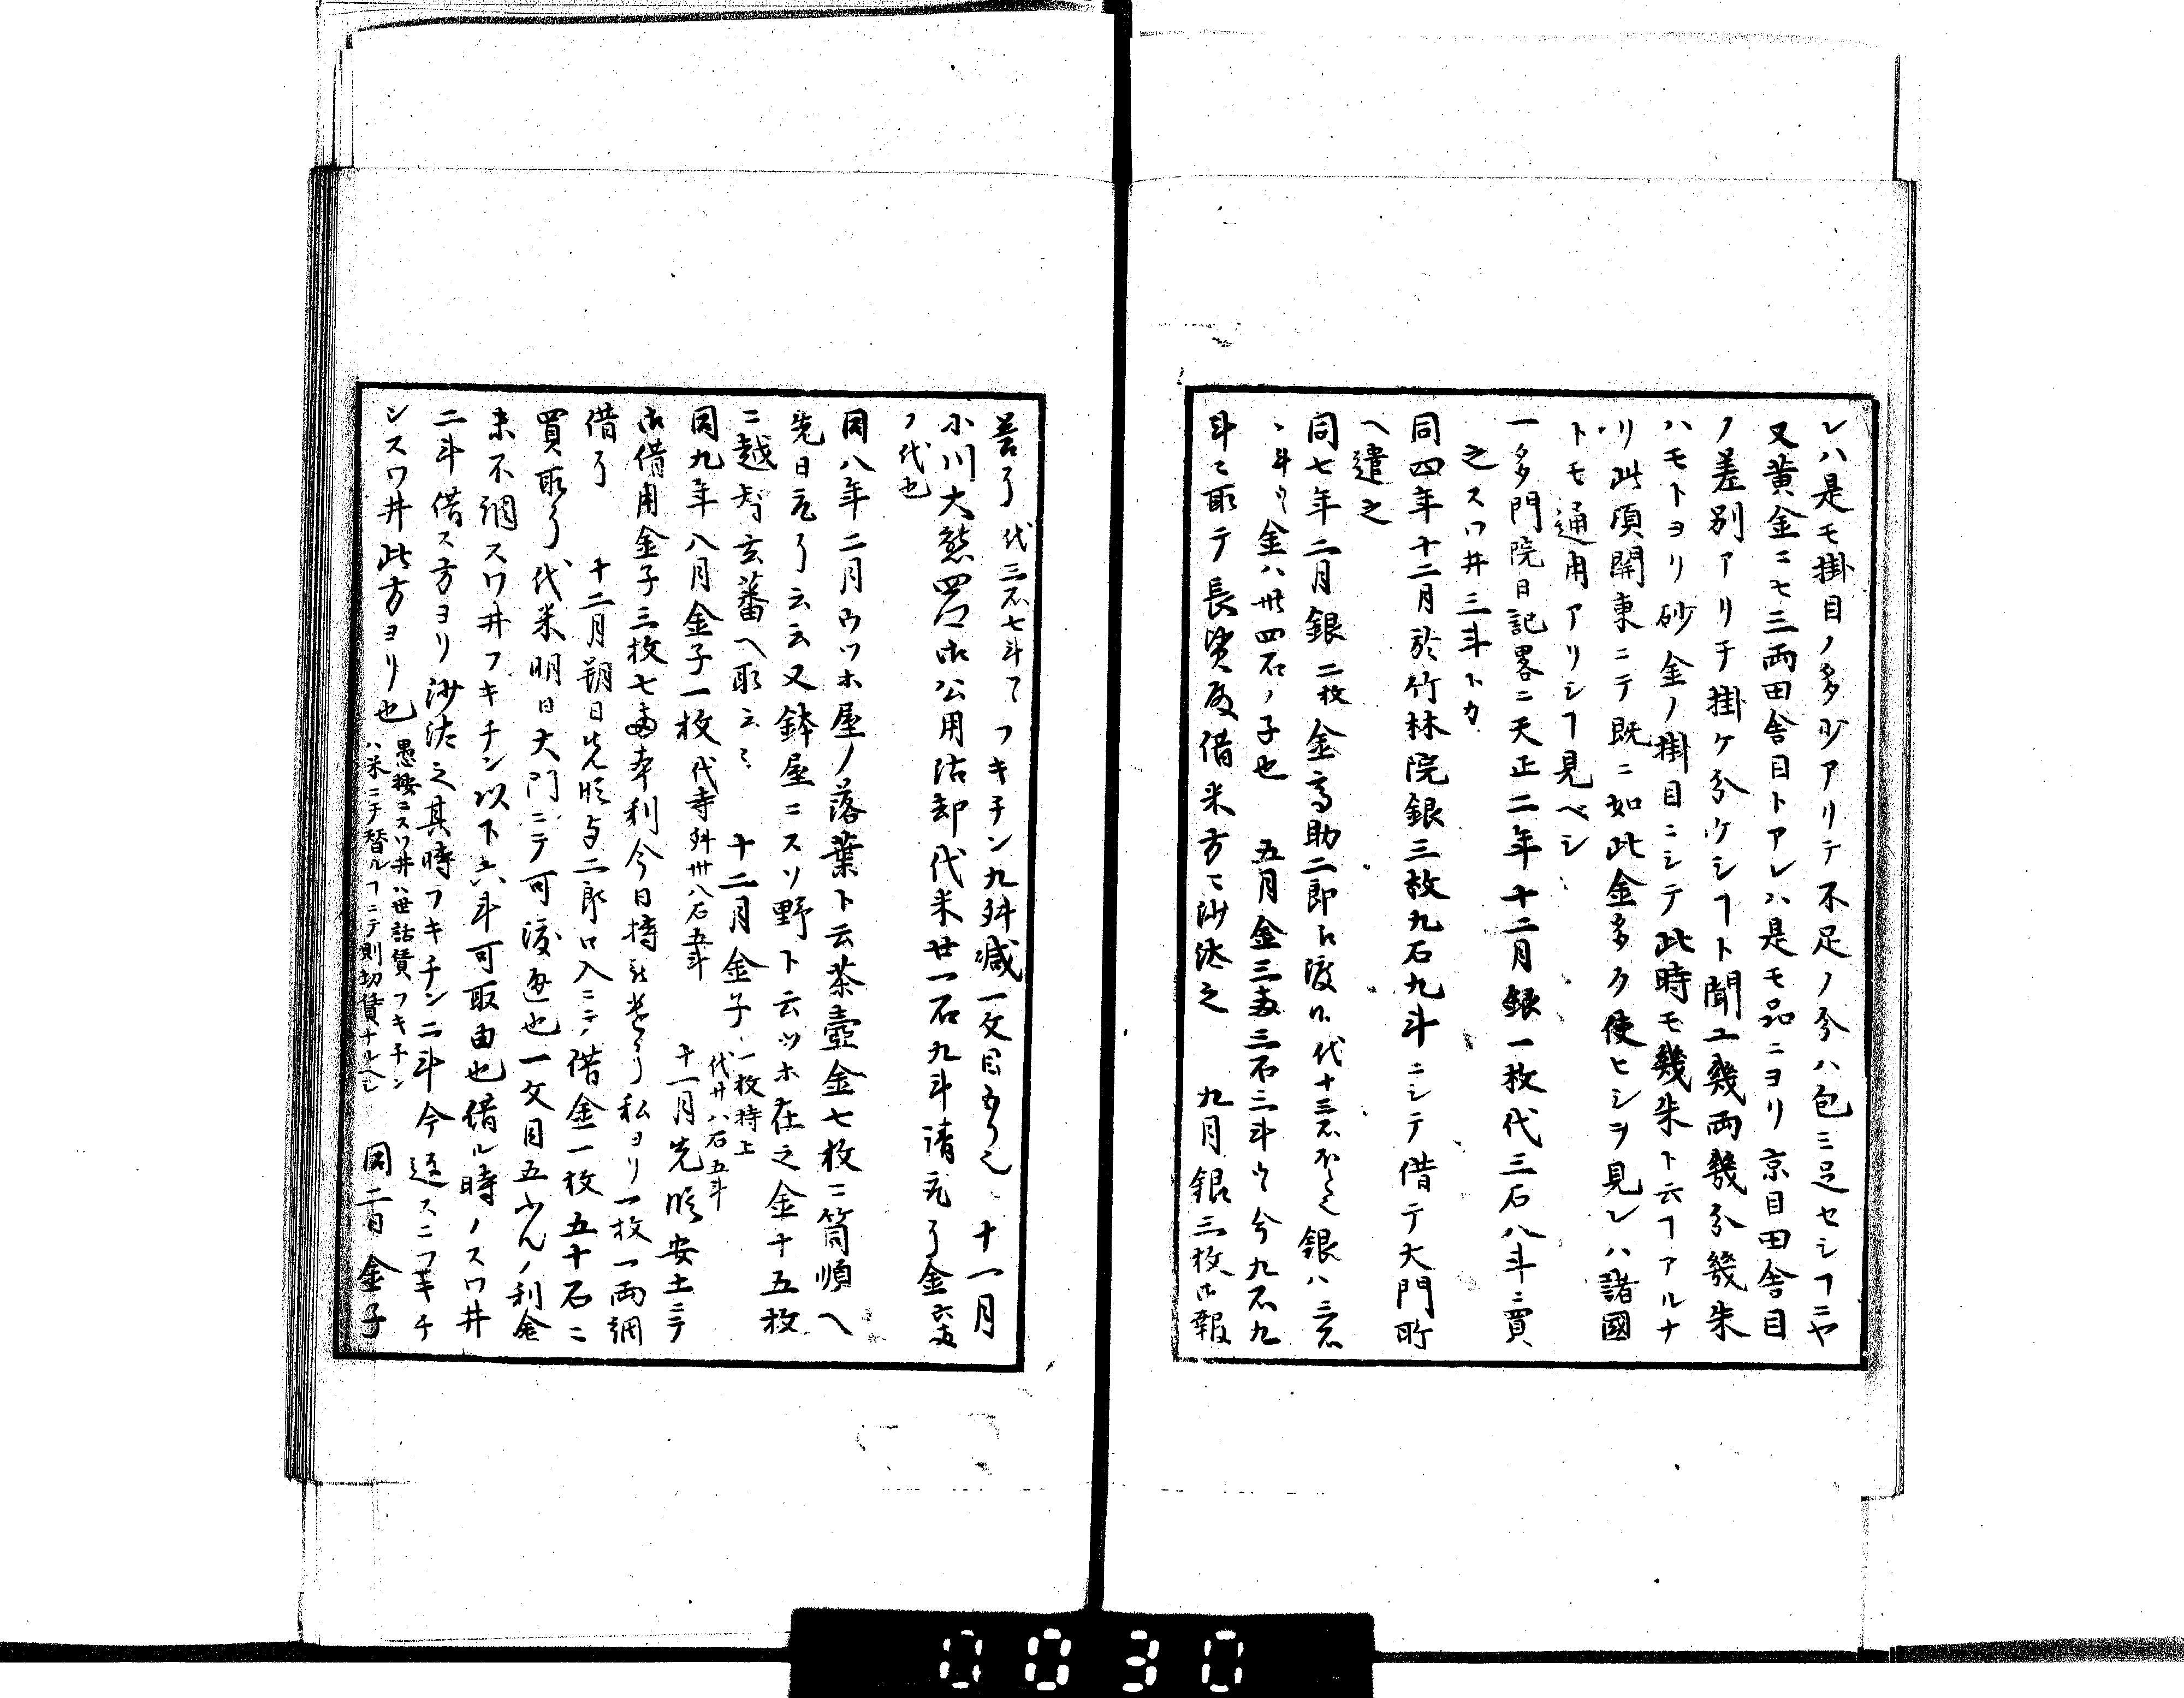 レハ是モ掛目ノ多少アリテ不足ノ分ハ包ミ足セシヿニヤ
又黄金ニモ三両田舎目トアレハ是モ品ニヨリ京目田舎目
ノ差別アリチ掛ケ分ケシヿト聞エ幾両幾分幾朱
ハモトヨリ砂金ノ掛目ニシテ此時モ幾朱ト云ヿアルナ
リ此頃関東ニテ既ニ如此金多ク使ヒシヲ見レハ諸國
トモ通用アリシヿ見ベシ
一多門院日記畧ニ天正二年十二月銀一枚代三石八斗ニ買
之スワ井三斗トカ
同四年十二月於竹林院銀三枚九石九斗ニシテ借テ大門所
ヘ遣之
同七年二月銀二枚金 助二郎 渡 代十三石 銀ハ三石
斗ツ金ハ卅四石ノ子也 五月金三両三石三斗ツ 九石九
斗ニ取テ長 借米方ニ沙汰之 九月銀三枚御報
善了代三石七斗 フキチン九舛減一文目 十一月
小川大熊四 御公用沽却代米廿一石九斗請取了金
ノ代也
同八年二月ウツホ屋ノ落葉ト云茶壺金七枚ニ筒順ヘ
先日売了云云又鉢屋ニスソ野ト云ツホ在之金十五枚
ニ越智玄蕃ヘ取云々 十二月金子一枚持上代廿八石五斗
同九年八月金子一枚代寺舛卅八石五斗 十一月先段安土ニテ
御借用金子三枚七両本利今日持 了私ヨリ一枚一両調
借了 十二月朔日先段与二郎口入ニテ借金一枚五十石ニ
買取了代米明日大門ニテ可渡 也一文目五ふんノ利金
未不調スワ井フキチン以下六斗可取由也借ル時ノスワ井
二斗借ス方ヨリ沙汰之其時フキチン二斗今返スニフキチ
ンスワ井此方ヨリ也 愚按ニスワ井ハ世話賃フキチンハ米ニテ替ルヿニテ則切賃ナルヘシ 同二日金子
0030